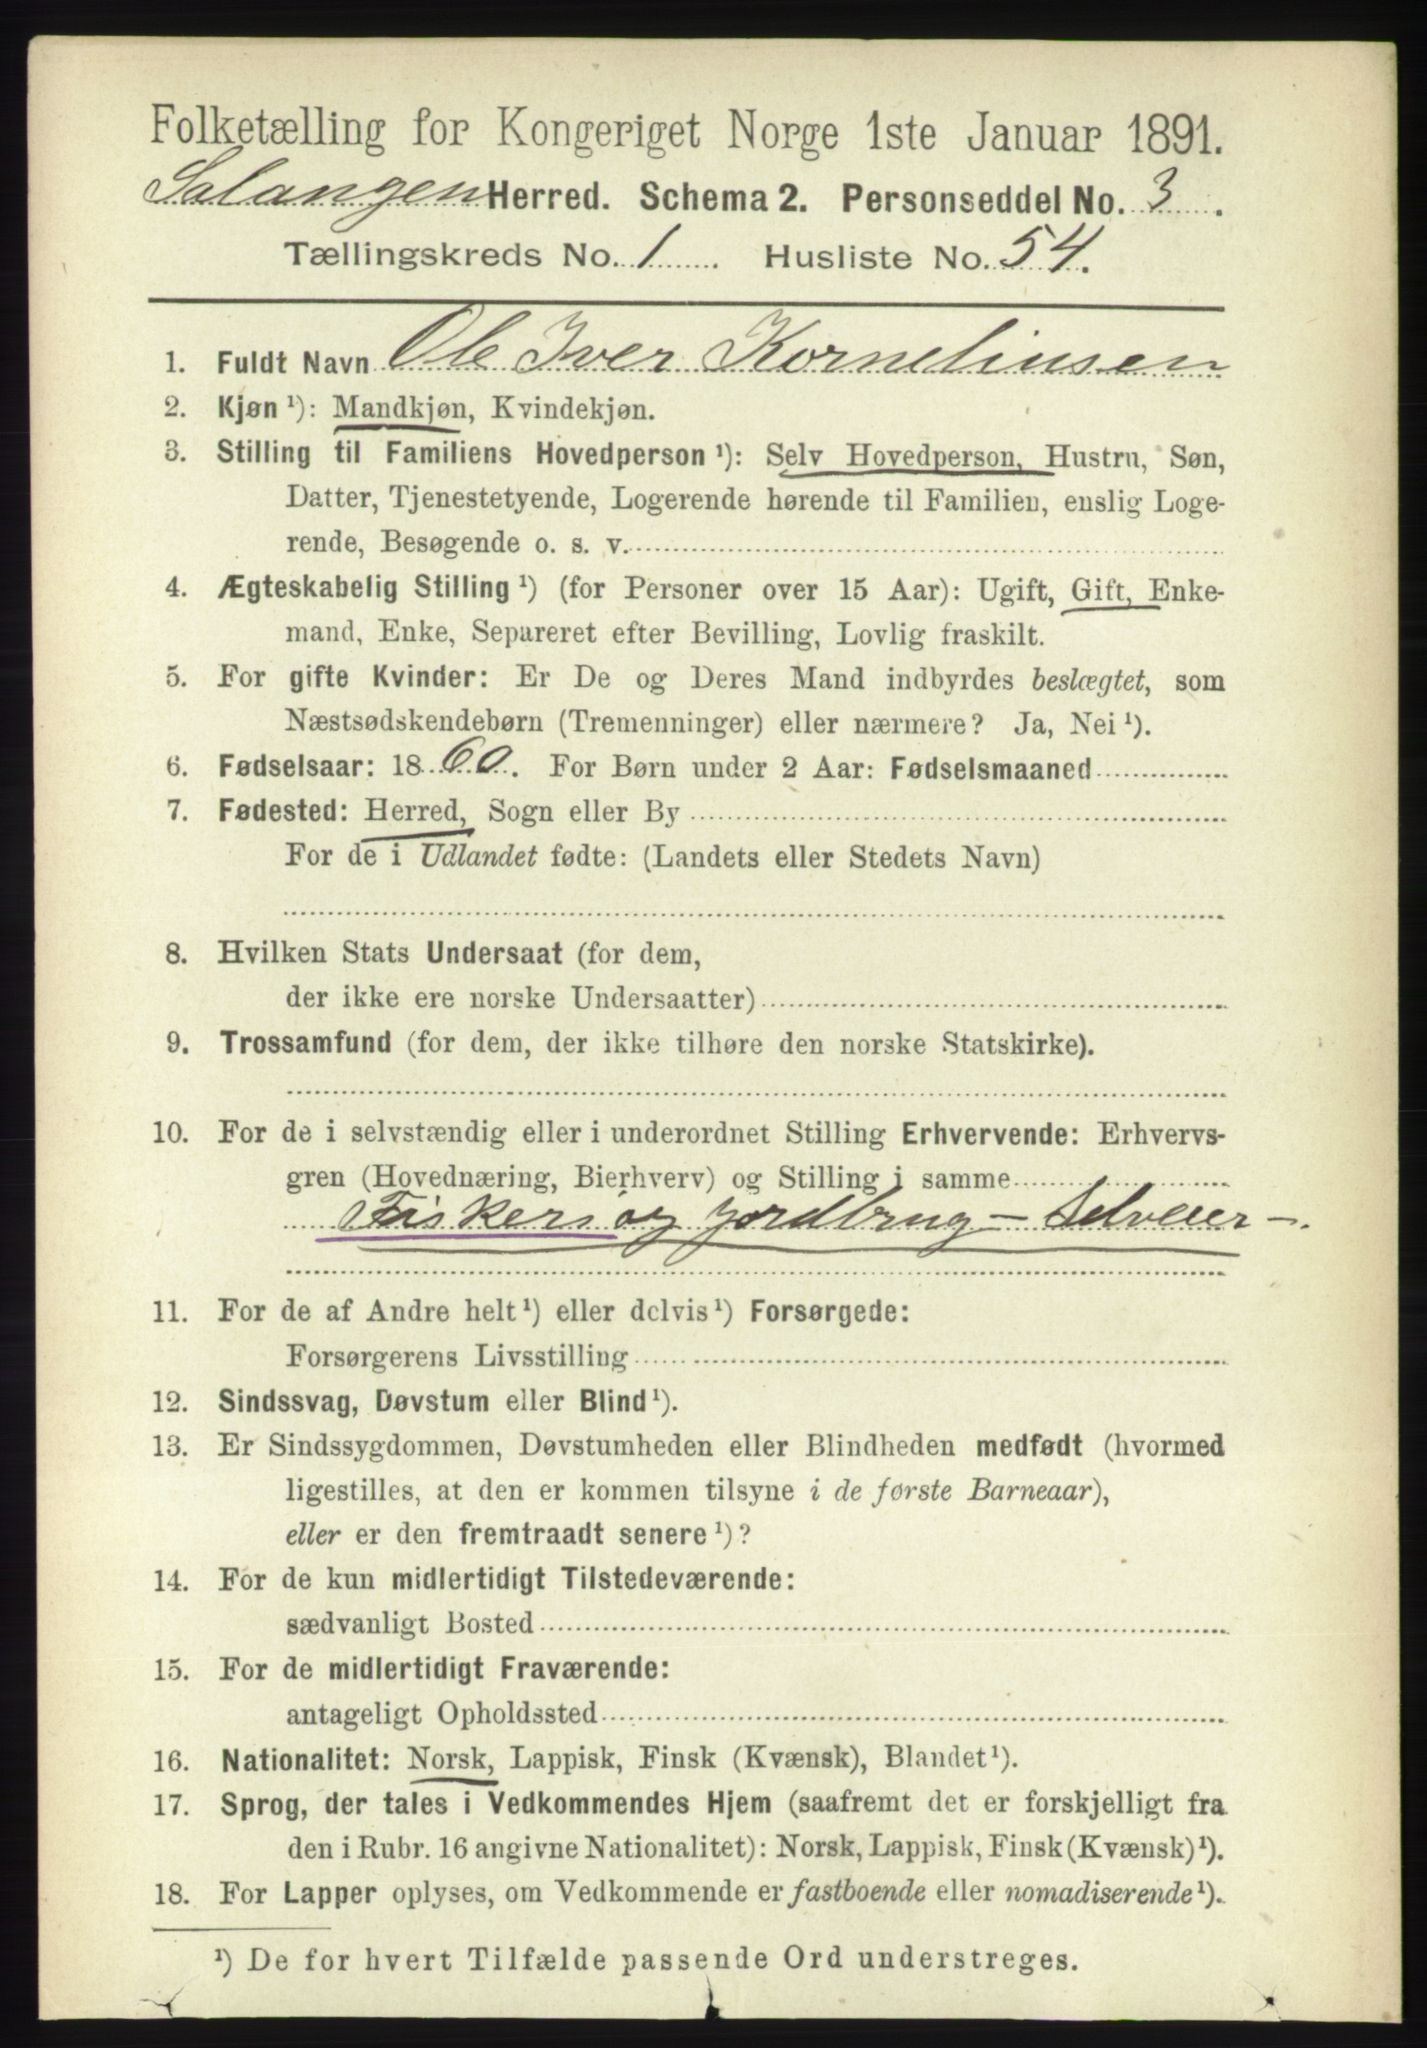 Folketælling for Kongeriget Norge 1ste Januar 1891.
Salangen Herred. Schema 2. Personseddel No. 3.
Tællingskreds No. 1 Husliste No. 54.
1. Fuldt Navn Ole Iver Kornelinsen
2. Kjøn ¹): Mandkjøn, Kvindekjøn.
3. Stilling til Familiens Hovedperson ¹): Selv Hovedperson, Hustru, Søn,
Datter, Tjenestetyende, Logerende hørende til Familien, enslig Loge-
rende, Besøgende o. s. v.
4. Ægteskabelig Stilling ¹) (for Personer over 15 Aar): Ugift, Gift, Enke-
mand, Enke, Separeret efter Bevilling, Lovlig fraskilt.
5. For gifte Kvinder: Er De og Deres Mand indbyrdes beslægtet, som
Næstsødskendebørn (Tremenninger) eller nærmere? Ja, Nei ¹).
6. Fødselsaar: 1860. For Børn under 2 Aar: Fødselsmaaned
7. Fødested: Herred, Sogn eller By
For de i Udlandet fødte: (Landets eller Stedets Navn)
8. Hvilken Stats Undersaat (for dem,
der ikke ere norske Undersaatter)
9. Trossamfund (for dem, der ikke tilhøre den norske Statskirke).
10. For de i selvstændig eller i underordnet Stilling Erhvervende: Erhvervs-
gren (Hovednæring, Bierhverv) og Stilling i samme
Fiskeri og jordbrug - Selveier -.
11. For de af Andre helt ¹) eller delvis ¹) Forsørgede:
Forsørgerens Livsstilling
12. Sindssvag, Døvstum eller Blind ¹).
13. Er Sindssygdommen, Døvstumheden eller Blindheden medfødt (hvormed
ligestilles, at den er kommen tilsyne i de første Barneaar),
eller er den fremtraadt senere ¹)?
14. For de kun midlertidigt Tilstedeværende:
sædvanligt Bosted
15. For de midlertidigt Fraværende:
antageligt Opholdssted
16. Nationalitet: Norsk, Lappisk, Finsk (Kvænsk), Blandet ¹).
17. Sprog, der tales i Vedkommendes Hjem (saafremt det er forskjelligt fra
den i Rubr. 16 angivne Nationalitet): Norsk, Lappisk, Finsk (Kvænsk) ¹).
18. For Lapper oplyses, om Vedkommende er fastboende eller nomadiserende ¹).
¹) De for hvert Tilfælde passende Ord understreges.